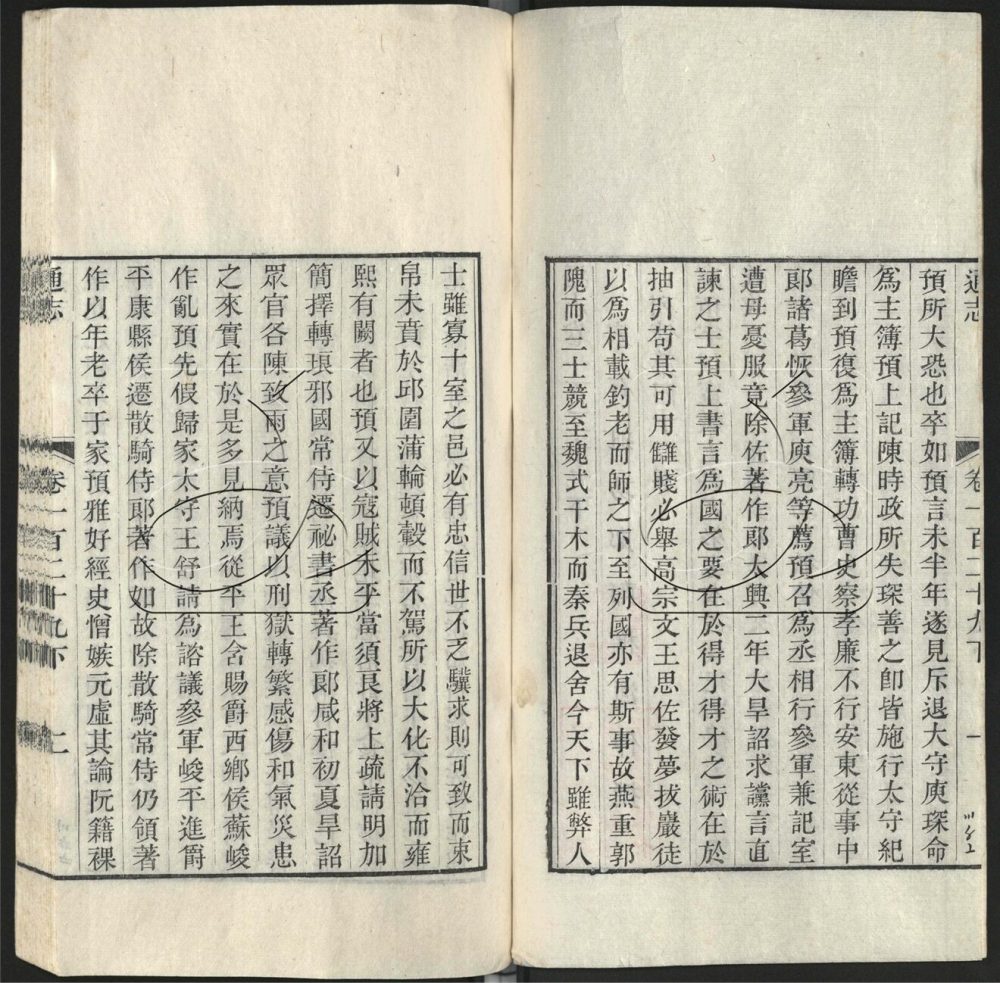 通志 卷一百二十九下
預所大恐也卒如預言未半年遂見斥退大守庾琛命
為主簿預上記陳時政所失琛善之卽皆施行太守紀
瞻到預復為主簿轉功曹史察孝廉不行安東從事中
郞諸葛恢參軍庾亮等薦預召為丞相行參軍兼記室
遭母憂服竟除佐著作郞太興二年大旱詔求讜言直
諫之士預上書言為國之要在於得才得才之術在於
抽引苟其可用讎賤必舉高宗文王思佐發夢拔巖徒
以為相載釣老而師之下至列國亦有斯事故燕重郭
隗而三士競至魏式干木而秦兵退舍今天下雖弊人
士雖寡十室之邑必有忠信世不乏驥求則可致而束
帛未賁於邱園蒲輪頓轂而不駕所以大化不洽而雍
熙有闕者也預又以寇賊未平當須良將上疏請明加
簡擇轉琅邪國常侍遷祕書丞著作郞咸和初夏旱詔
眾官各陳致雨之意預議以刑獄轉繁感傷和氣災患
之來實在於是多見納焉從平王含賜爵西鄉侯蘇峻
作亂預先假歸家太守王舒請為諮議參軍峻平進爵
平康縣侯遷散騎侍郞著作如故除散騎常侍仍領著
作以年老卒于家預雅好經史憎嫉元虛其論阮籍裸
通志 卷一百二十九下